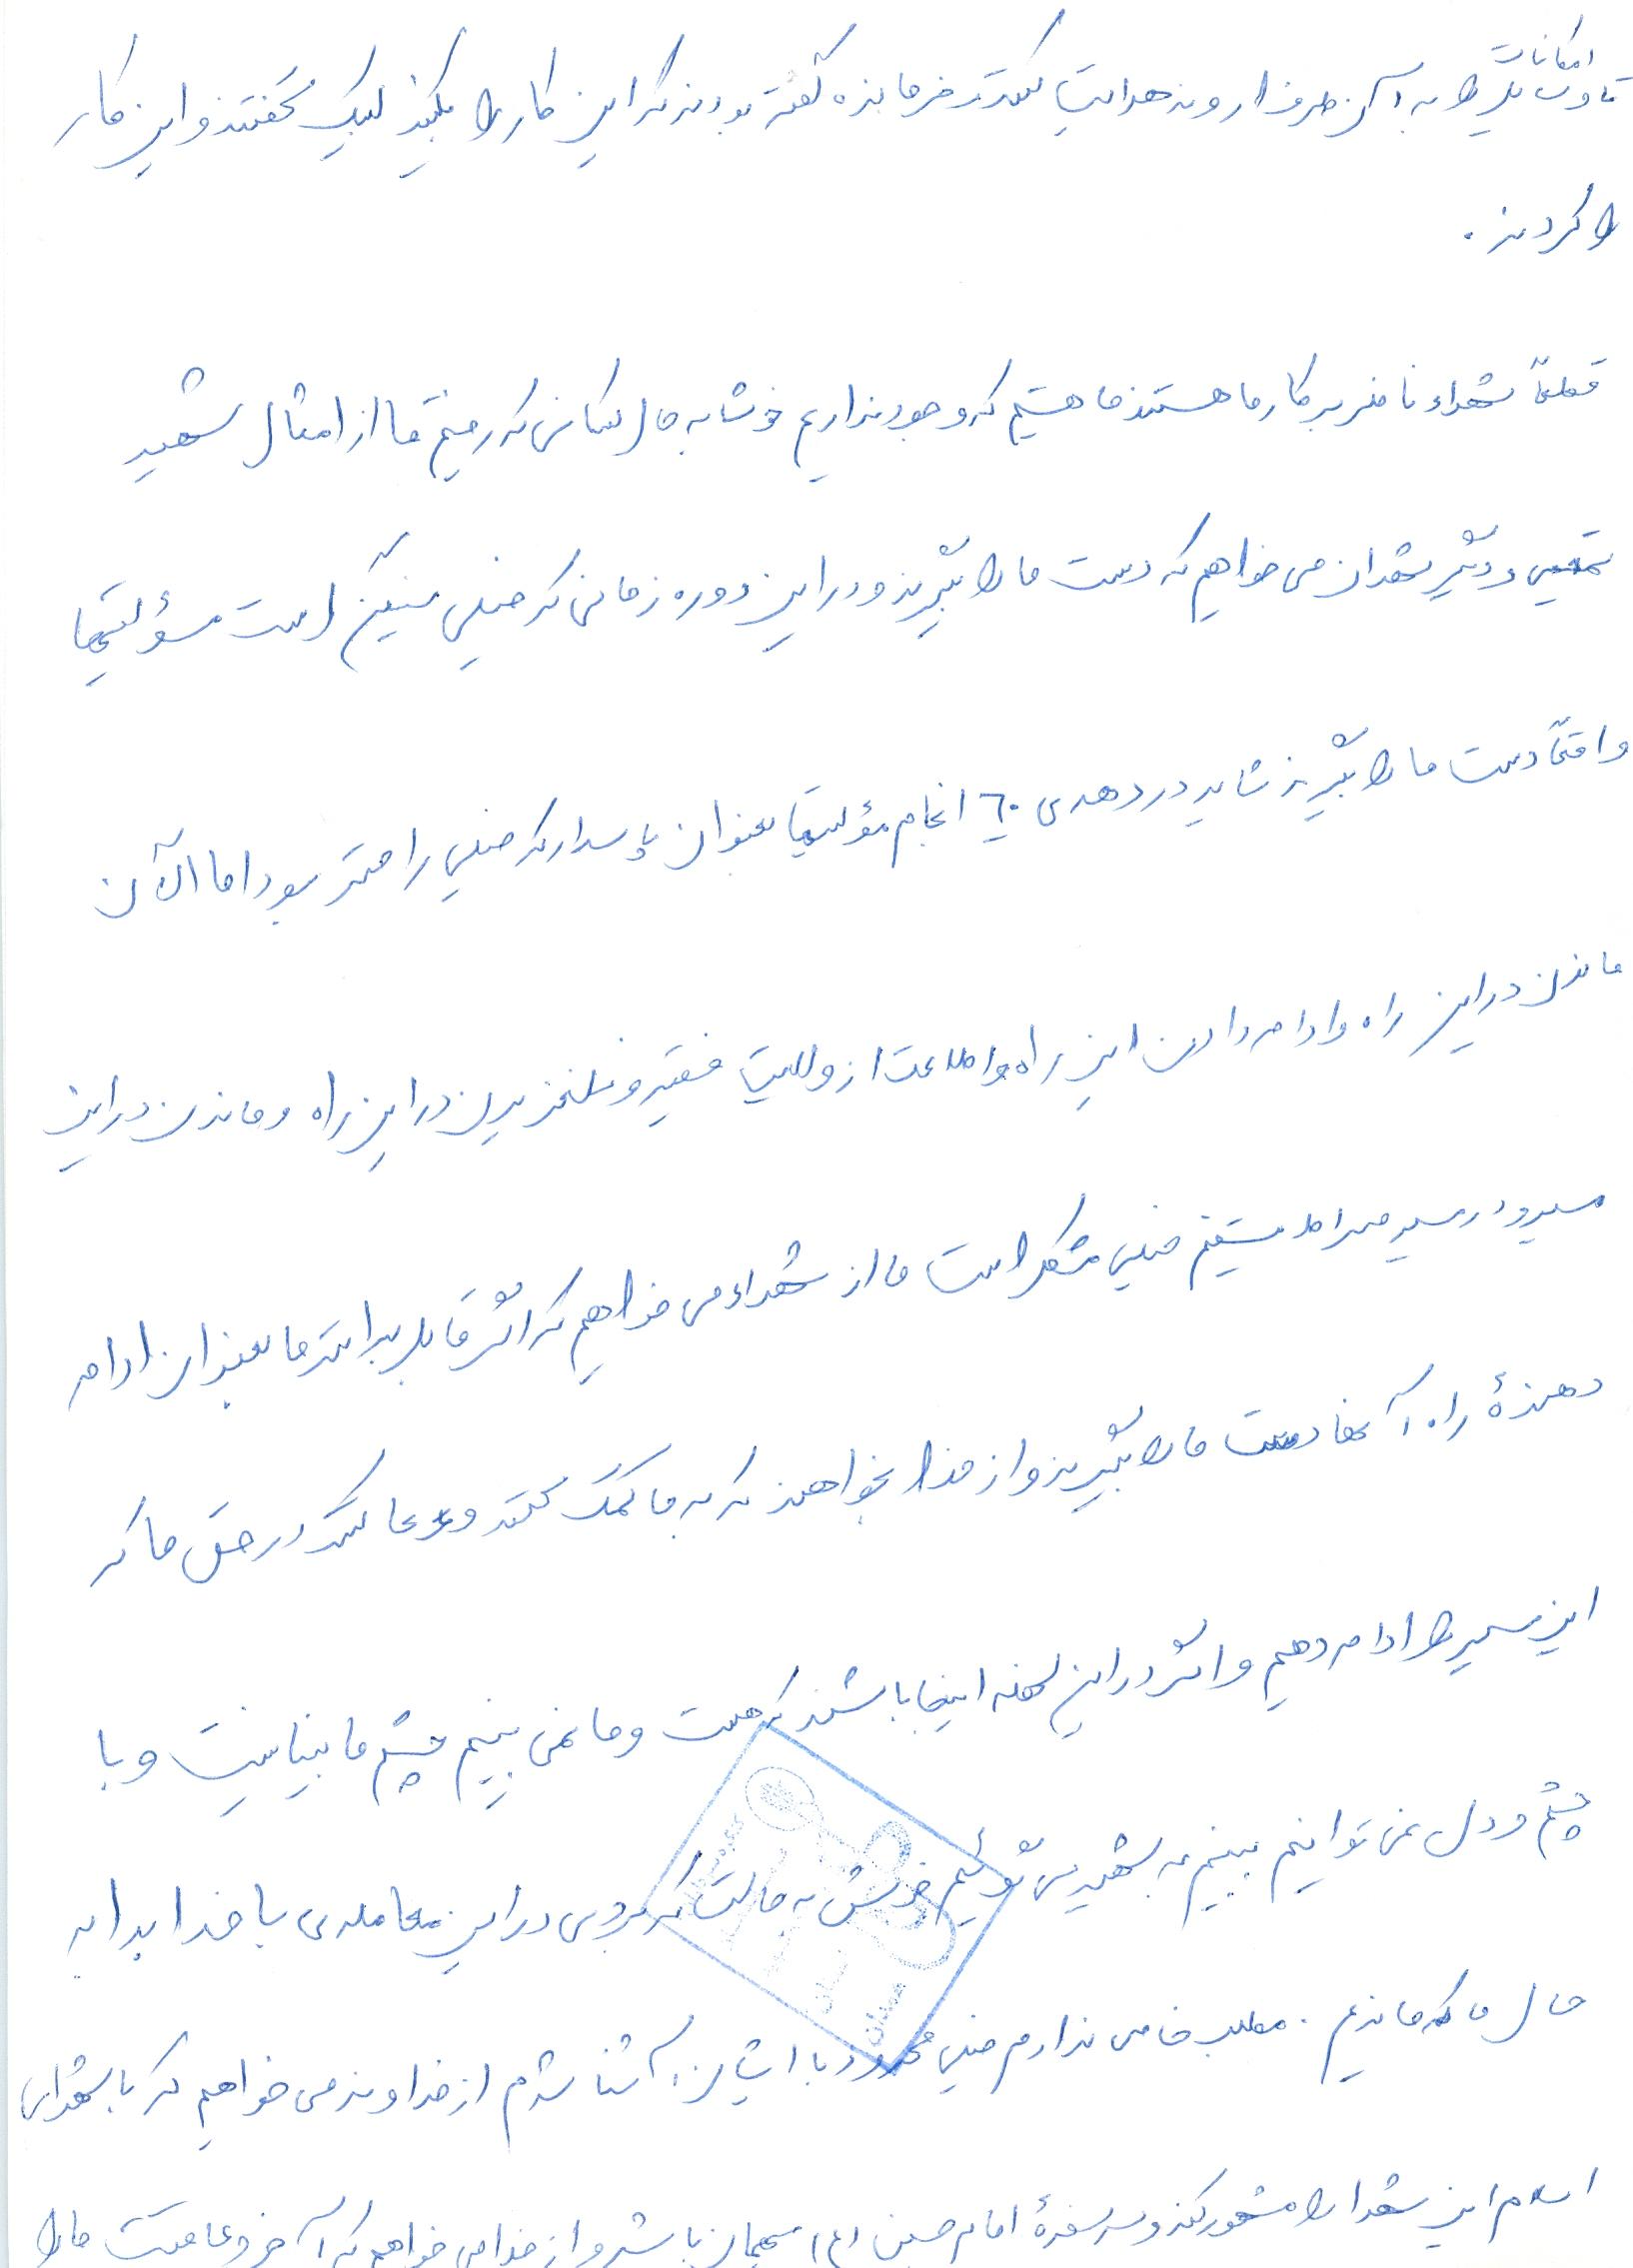 امکانات
تا وسایل را به آن طرف اروند هدایت کنند فرمانده گفته بودند که این کار را بکنید لبیک گفتند و این کار
را کردند.
قطعاً شهداء ناظر بر کار ما هستند ما هستیم که وجود نداریم خوشا به حال کسانی که رفتند ما از امثال شهید
و دیگر شهدا می خواهیم که دست ما را بگیرند و در این دوره زمانی که خیلی سنگین است مسؤلیتها
واقعاً دست ما را بگیرند شاید در دهه‌ی ٦٠ انجام مؤلیتها بعنوان پاسدار که خیلی راحتتر بود اما الآن
ماندن در این راه و ادامه دادن این راه و اطاعت از ولایت فقیه و نلغزیدن در این راه و ماندن در این
مسیر و در مسیر صراط مستقیم خیلی مشکل است ما از شهداء می خواهیم که اگر قابل بدانند ما بعنوان ادامه
دهندهٔ راه آنها دست ما را بگیرند و از خدا بخواهند که به ما کمک کنند و دعا کنند در حق ما که
این مسیر را ادامه دهیم و اگر در این لحظه اینجا باشند که هست و ما نمی بینیم چشم ما بینا نیست و با
چشم و دل نمی توانیم ببینیم به شهید می گوئیم خوش به حالت که بردی در این معامله‌ی با خدا بدا به
حال ما که ماندیم. مطلب خاصی ندارم خیلی محدود با ایشان آشنا شدم از خداوند می خواهیم که با شهدای
اسلام این شهدا را محشور کند و سر سفرهٔ امام حسین (ع) مهمان باشد و از خدا می خواهم که آخر و عاقبت ما را